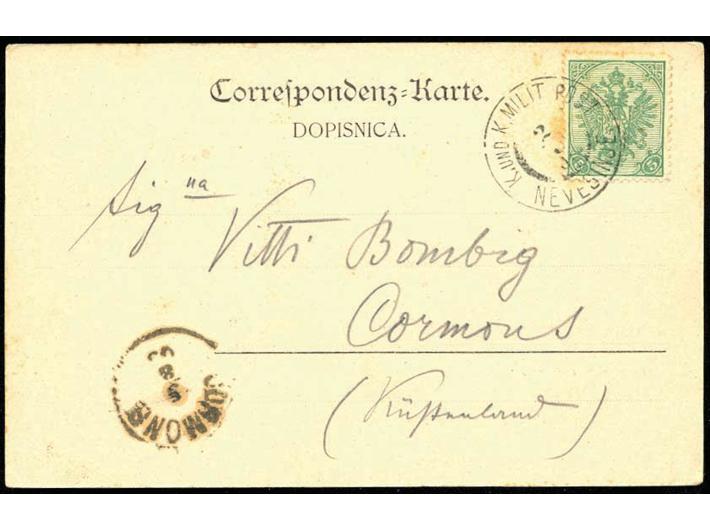 Correspondenz-Karte.
DOPISNICA.
K. UND K. MILIT. POST
NEVESINJE
5 5
Sig na
Vitti Bombig
Cormons
(Küstenland)
CORMONS